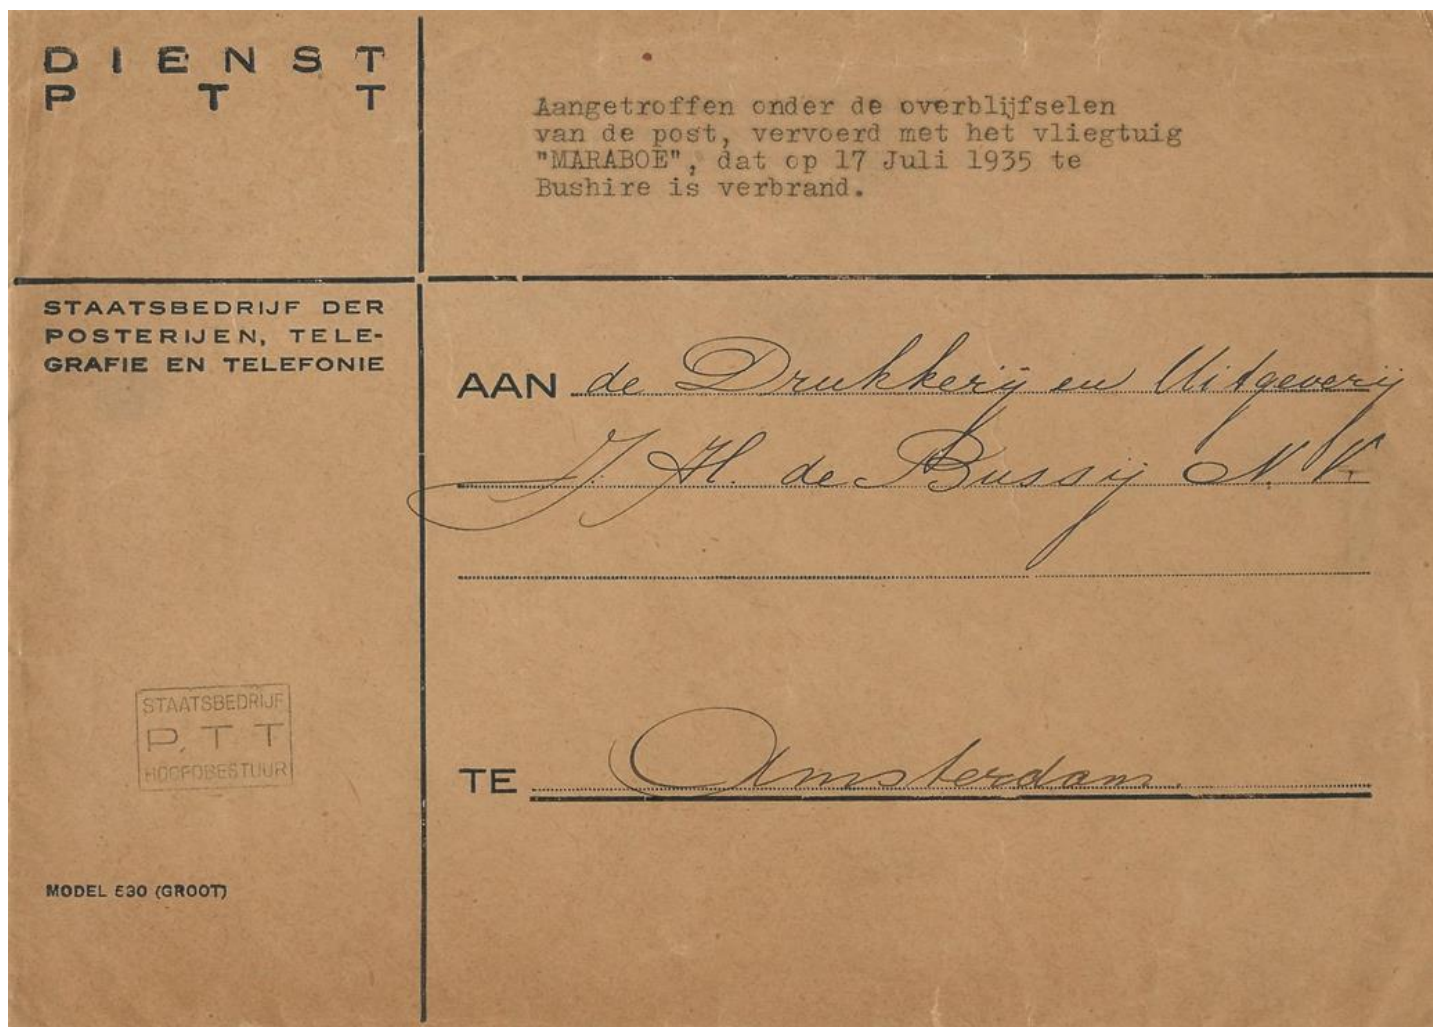 DIENST
PTT
Aangetroffen onder de overblijfselen
van de post, vervoerd met het vliegtuig
"MARABOE", dat op 17 Juli 1935 te
Bushire is verbrand.
STAATSBEDRIJF DER
POSTERIJEN, TELE-
GRAFIE EN TELEFONIE
AAN de Drukkerij en Uitgeverij
J. H. de Bussij N. V.
STAATSBEDRIJF
P.T T
HOOFDBESTUUR
TE Amsterdam.
MODEL 530 (GROOT)